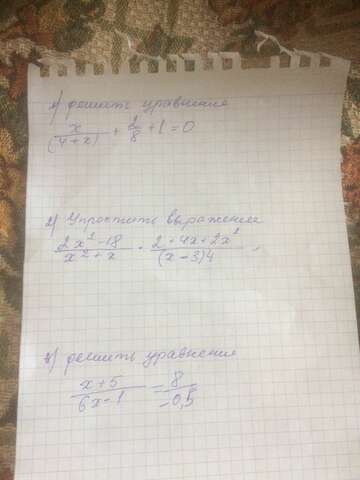 1) решить уравнение
x/(4+x) + 1/8 + 1 = 0
2) Упростить выражение
(2x² - 18)/(x² + x) · (2 + 4x + 2x²)/((x - 3)4)
3) решить уравнение
(x + 5)/(6x - 1) = 8/-0,5